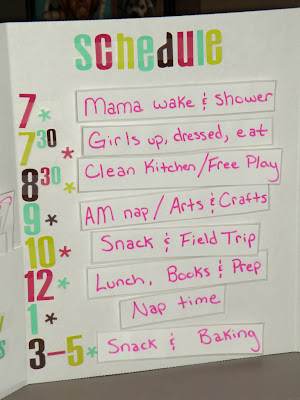 schedule
7* Mama wake & shower
730* Girls up, dressed, eat
830* Clean Kitchen/Free Play
9* AM nap/Arts & Crafts
10* Snack & Field Trip
12* Lunch, Books & Prep
1* Nap time
3-5* Snack & Baking